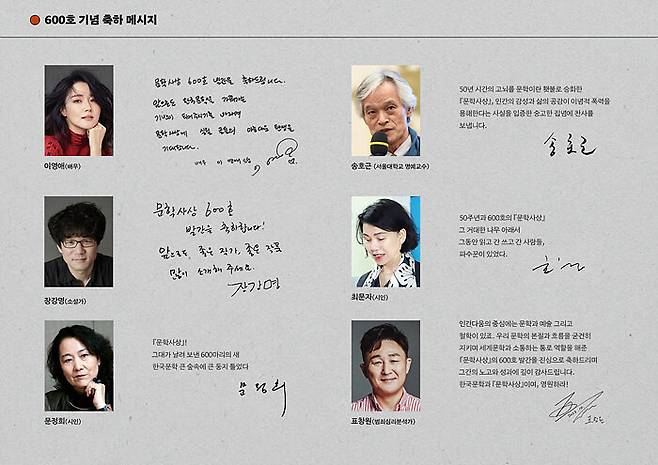 600호 기념 축하 메시지
문학사상 600호 발간을 축하드립니다.
앞으로도
기대합니다.
배우 이영애
이영애(배우)
50년 시간의 고뇌를 문학이란 횃불로 승화한
『문학사상』, 인간의 감성과 삶의 공감이 이념적 폭력을
용해한다는 사실을 입증한 숭고한 집념에 찬사를
보냅니다.
송호근
송호근 (서울대학교 명예교수)
문학사상 600호
발간을 축하합니다!
앞으로도, 좋은 작가, 좋은 작품
많이 소개해 주세요.
장강명
장강명(소설가)
50주년과 600호의 『문학사상』
그 거대한 나무 아래서
그동안 읽고 간 쓰고 간 사람들,
파수꾼이 있었다.
최문자(시인)
『문학사상』!
그대가 날려 보낸 600마리의 새
한국문학 큰 숲속에 큰 둥지 틀었다
문정희
문정희(시인)
인간다움의 중심에는 문학과 예술 그리고
철학이 있죠. 우리 문학의 본질과 흐름을 굳건히
지키며 세계문학과 소통하는 통로 역할을 해준
『문학사상』의 600호 발간을 진심으로 축하드리며
그간의 노고와 성과에 깊이 감사드립니다.
한국문학과 『문학사상』이여, 영원하라!
표창원
표창원(범죄심리분석가)